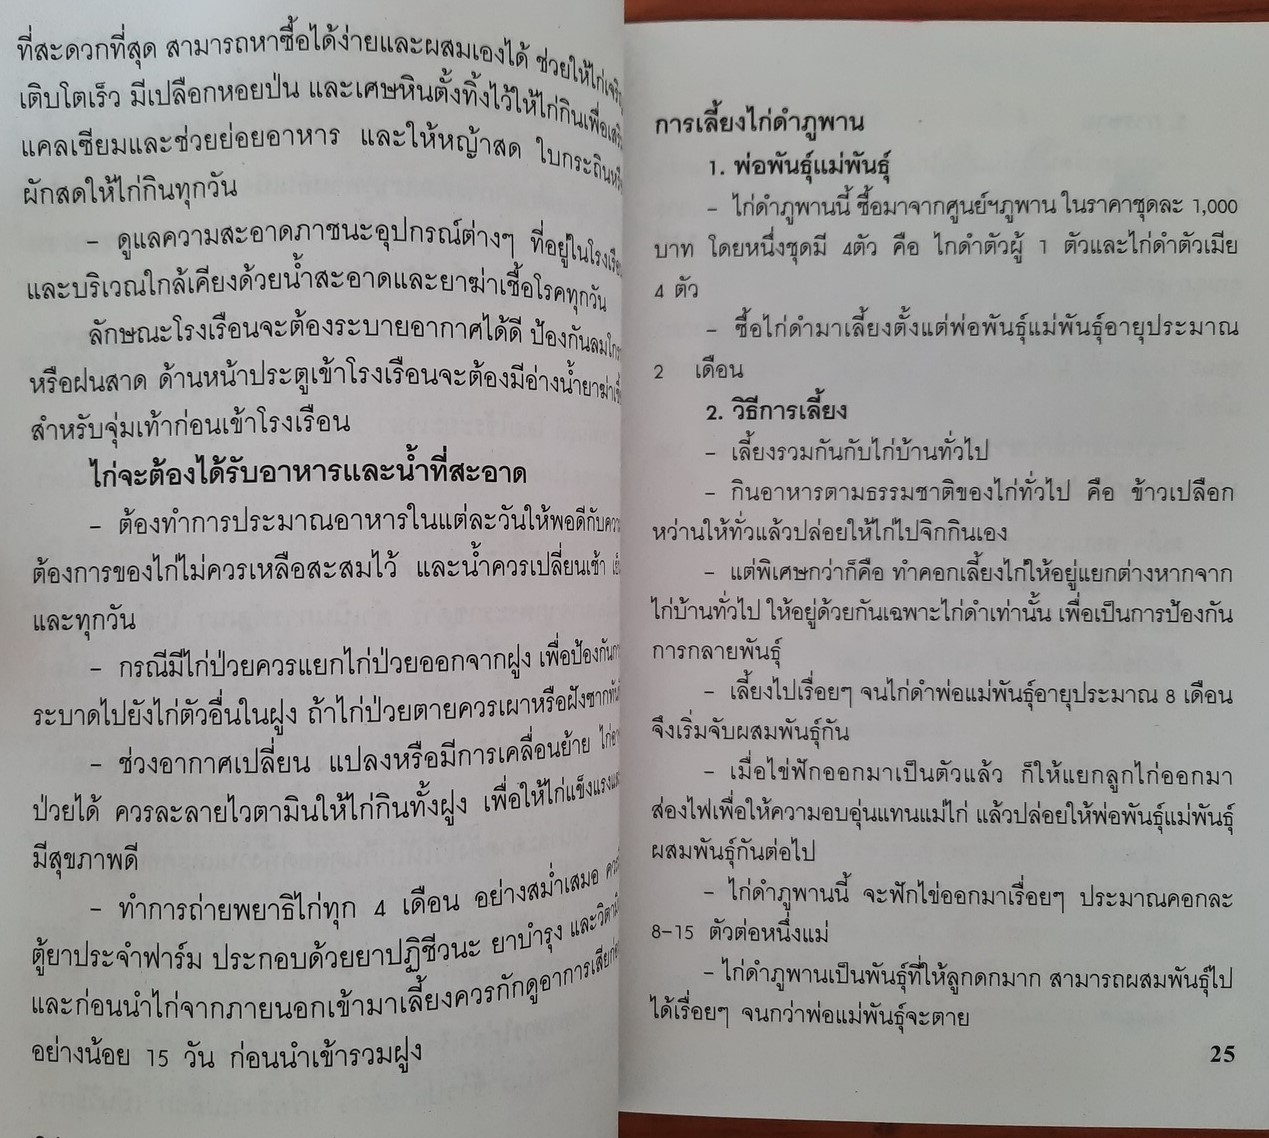 ที่สะดวกที่สุด สามารถหาซื้อได้ง่ายและผสมเองได้ ช่วยให้ไก่
เติบโตเร็ว มีเปลือกหอยป่น และเศษหินตั้งทิ้งไว้ให้ไก่กินเพื่อ
แคลเซียมและช่วยย่อยอาหาร และให้หญ้าสด ใบกระถิน
ผักสดให้ไก่กินทุกวัน
– ดูแลความสะอาดภาชนะอุปกรณ์ต่างๆ ที่อยู่ในโรง
และบริเวณใกล้เคียงด้วยน้ำสะอาดและยาฆ่าเชื้อโรคทุกวัน
ลักษณะโรงเรือนจะต้องระบายอากาศได้ดี ป้องกันลม
หรือฝนสาด ด้านหน้าประตูเข้าโรงเรือนจะต้องมีอ่างน้ำยาฆ่า
สำหรับจุ่มเท้าก่อนเข้าโรงเรือน
ไก่จะต้องได้รับอาหารและน้ำที่สะอาด
– ต้องทำการประมาณอาหารในแต่ละวันให้พอดีกับ
ต้องการของไก่ไม่ควรเหลือสะสมไว้ และน้ำควรเปลี่ยนเช้า
และทุกวัน
– กรณีมีไก่ป่วยควรแยกไก่ป่วยออกจากฝูง เพื่อป้องกัน
ระบาดไปยังไก่ตัวอื่นในฝูง ถ้าไก่ป่วยตายควรเผาหรือฝังซาก
– ช่วงอากาศเปลี่ยน แปลงหรือมีการเคลื่อนย้าย
ป่วยได้ ควรละลายไวตามินให้ไก่กินทั้งฝูง เพื่อให้ไก่แข็งแรง
มีสุขภาพดี
– ทำการถ่ายพยาธิไก่ทุก 4 เดือน อย่างสม่ำเสมอ
ตู้ยาประจำฟาร์ม ประกอบด้วยยาปฏิชีวนะ ยาบำรุง และ
และก่อนนำไก่จากภายนอกเข้ามาเลี้ยงควรกักดูอาการเสีย
อย่างน้อย 15 วัน ก่อนนำเข้ารวมฝูง
การเลี้ยงไก่ดำภูพาน
1. พ่อพันธุ์แม่พันธุ์
– ไก่ดำภูพานนี้ ซื้อมาจากศูนย์ฯภูพาน ในราคาชุดละ 1,000
บาท โดยหนึ่งชุดมี 4ตัว คือ ไกดำตัวผู้ 1 ตัวและไก่ดำตัวเมีย
4 ตัว
– ซื้อไก่ดำมาเลี้ยงตั้งแต่พ่อพันธุ์แม่พันธุ์อายุประมาณ
2 เดือน
2. วิธีการเลี้ยง
– เลี้ยงรวมกันกับไก่บ้านทั่วไป
– กินอาหารตามธรรมชาติของไก่ทั่วไป คือ ข้าวเปลือก
หว่านให้ทั่วแล้วปล่อยให้ไก่ไปจิกกินเอง
– แต่พิเศษกว่าก็คือ ทำคอกเลี้ยงไก่ให้อยู่แยกต่างหากจาก
ไก่บ้านทั่วไป ให้อยู่ด้วยกันเฉพาะไก่ดำเท่านั้น เพื่อเป็นการป้องกัน
การกลายพันธุ์
– เลี้ยงไปเรื่อยๆ จนไก่ดำพ่อแม่พันธุ์อายุประมาณ 8 เดือน
จึงเริ่มจับผสมพันธุ์กัน
– เมื่อไข่ฟักออกมาเป็นตัวแล้ว ก็ให้แยกลูกไก่ออกมา
ส่องไฟเพื่อให้ความอบอุ่นแทนแม่ไก่ แล้วปล่อยให้พ่อพันธุ์แม่พันธุ์
ผสมพันธุ์กันต่อไป
– ไก่ดำภูพานนี้ จะฟักไข่ออกมาเรื่อยๆ ประมาณคอกละ
8–15 ตัวต่อหนึ่งแม่
– ไก่ดำภูพานเป็นพันธุ์ที่ให้ลูกดกมาก สามารถผสมพันธุ์ไป
ได้เรื่อยๆ จนกว่าพ่อแม่พันธุ์จะตาย
25